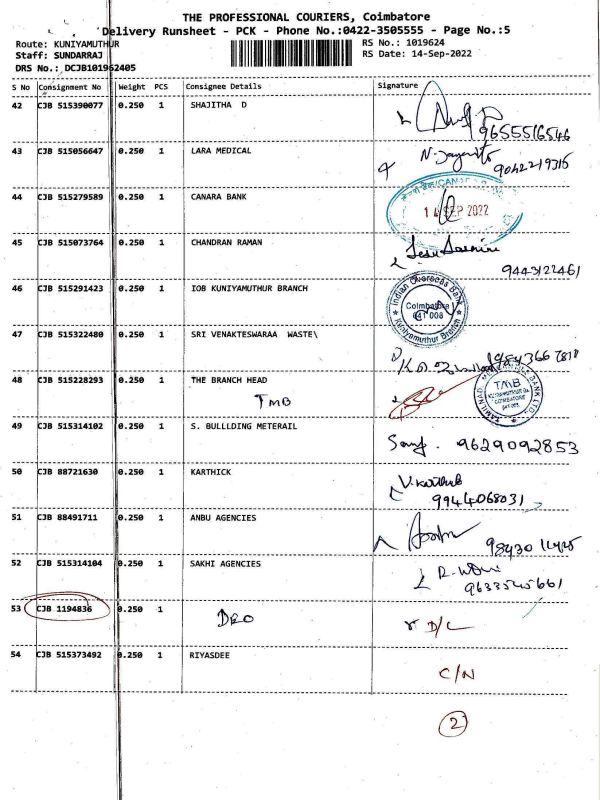 THE PROFESSIONAL COURIERS, Coimbatore
Delivery Runsheet - PCK - Phone No.:0422-3505555 - Page No.:5
Route: KUNIYAMUTHUR RS No.: 1019624
Staff: SUNDARRAJ RS Date: 14-Sep-2022
DRS No.: DCJB101962405
S No Consignment No Weight PCS Consignee Details Signature
42 CJB 515390077 0.250 1 SHAJITHA D
9655516546
43 CJB 515056647 0.250 1 LARA MEDICAL
9042219315
44 CJB 515279589 0.250 1 CANARA BANK
14 SEP 2022
45 CJB 515073764 0.250 1 CHANDRAN RAMAN
9443122461
46 CJB 515291423 0.250 1 IOB KUNIYAMUTHUR BRANCH
Indian Overseas Bank
Coimbatore
641 008
Kuniyamuthur Branch
47 CJB 515322480 0.250 1 SRI VENAKTESWARAA WASTE\
48 CJB 515228293 0.250 1 THE BRANCH HEAD
TMB
TMB
49 CJB 515314102 0.250 1 S. BULLLDING METERAIL
9629092853
50 CJB 88721630 0.250 1 KARTHICK
V. Karthick
9944068031
51 CJB 88491711 0.250 1 ANBU AGENCIES
52 CJB 515314104 0.250 1 SAKHI AGENCIES
9633545661
53 CJB 1194836 0.250 1
D/L
54 CJB 515373492 0.250 1 RIYASDEE
C/N
2